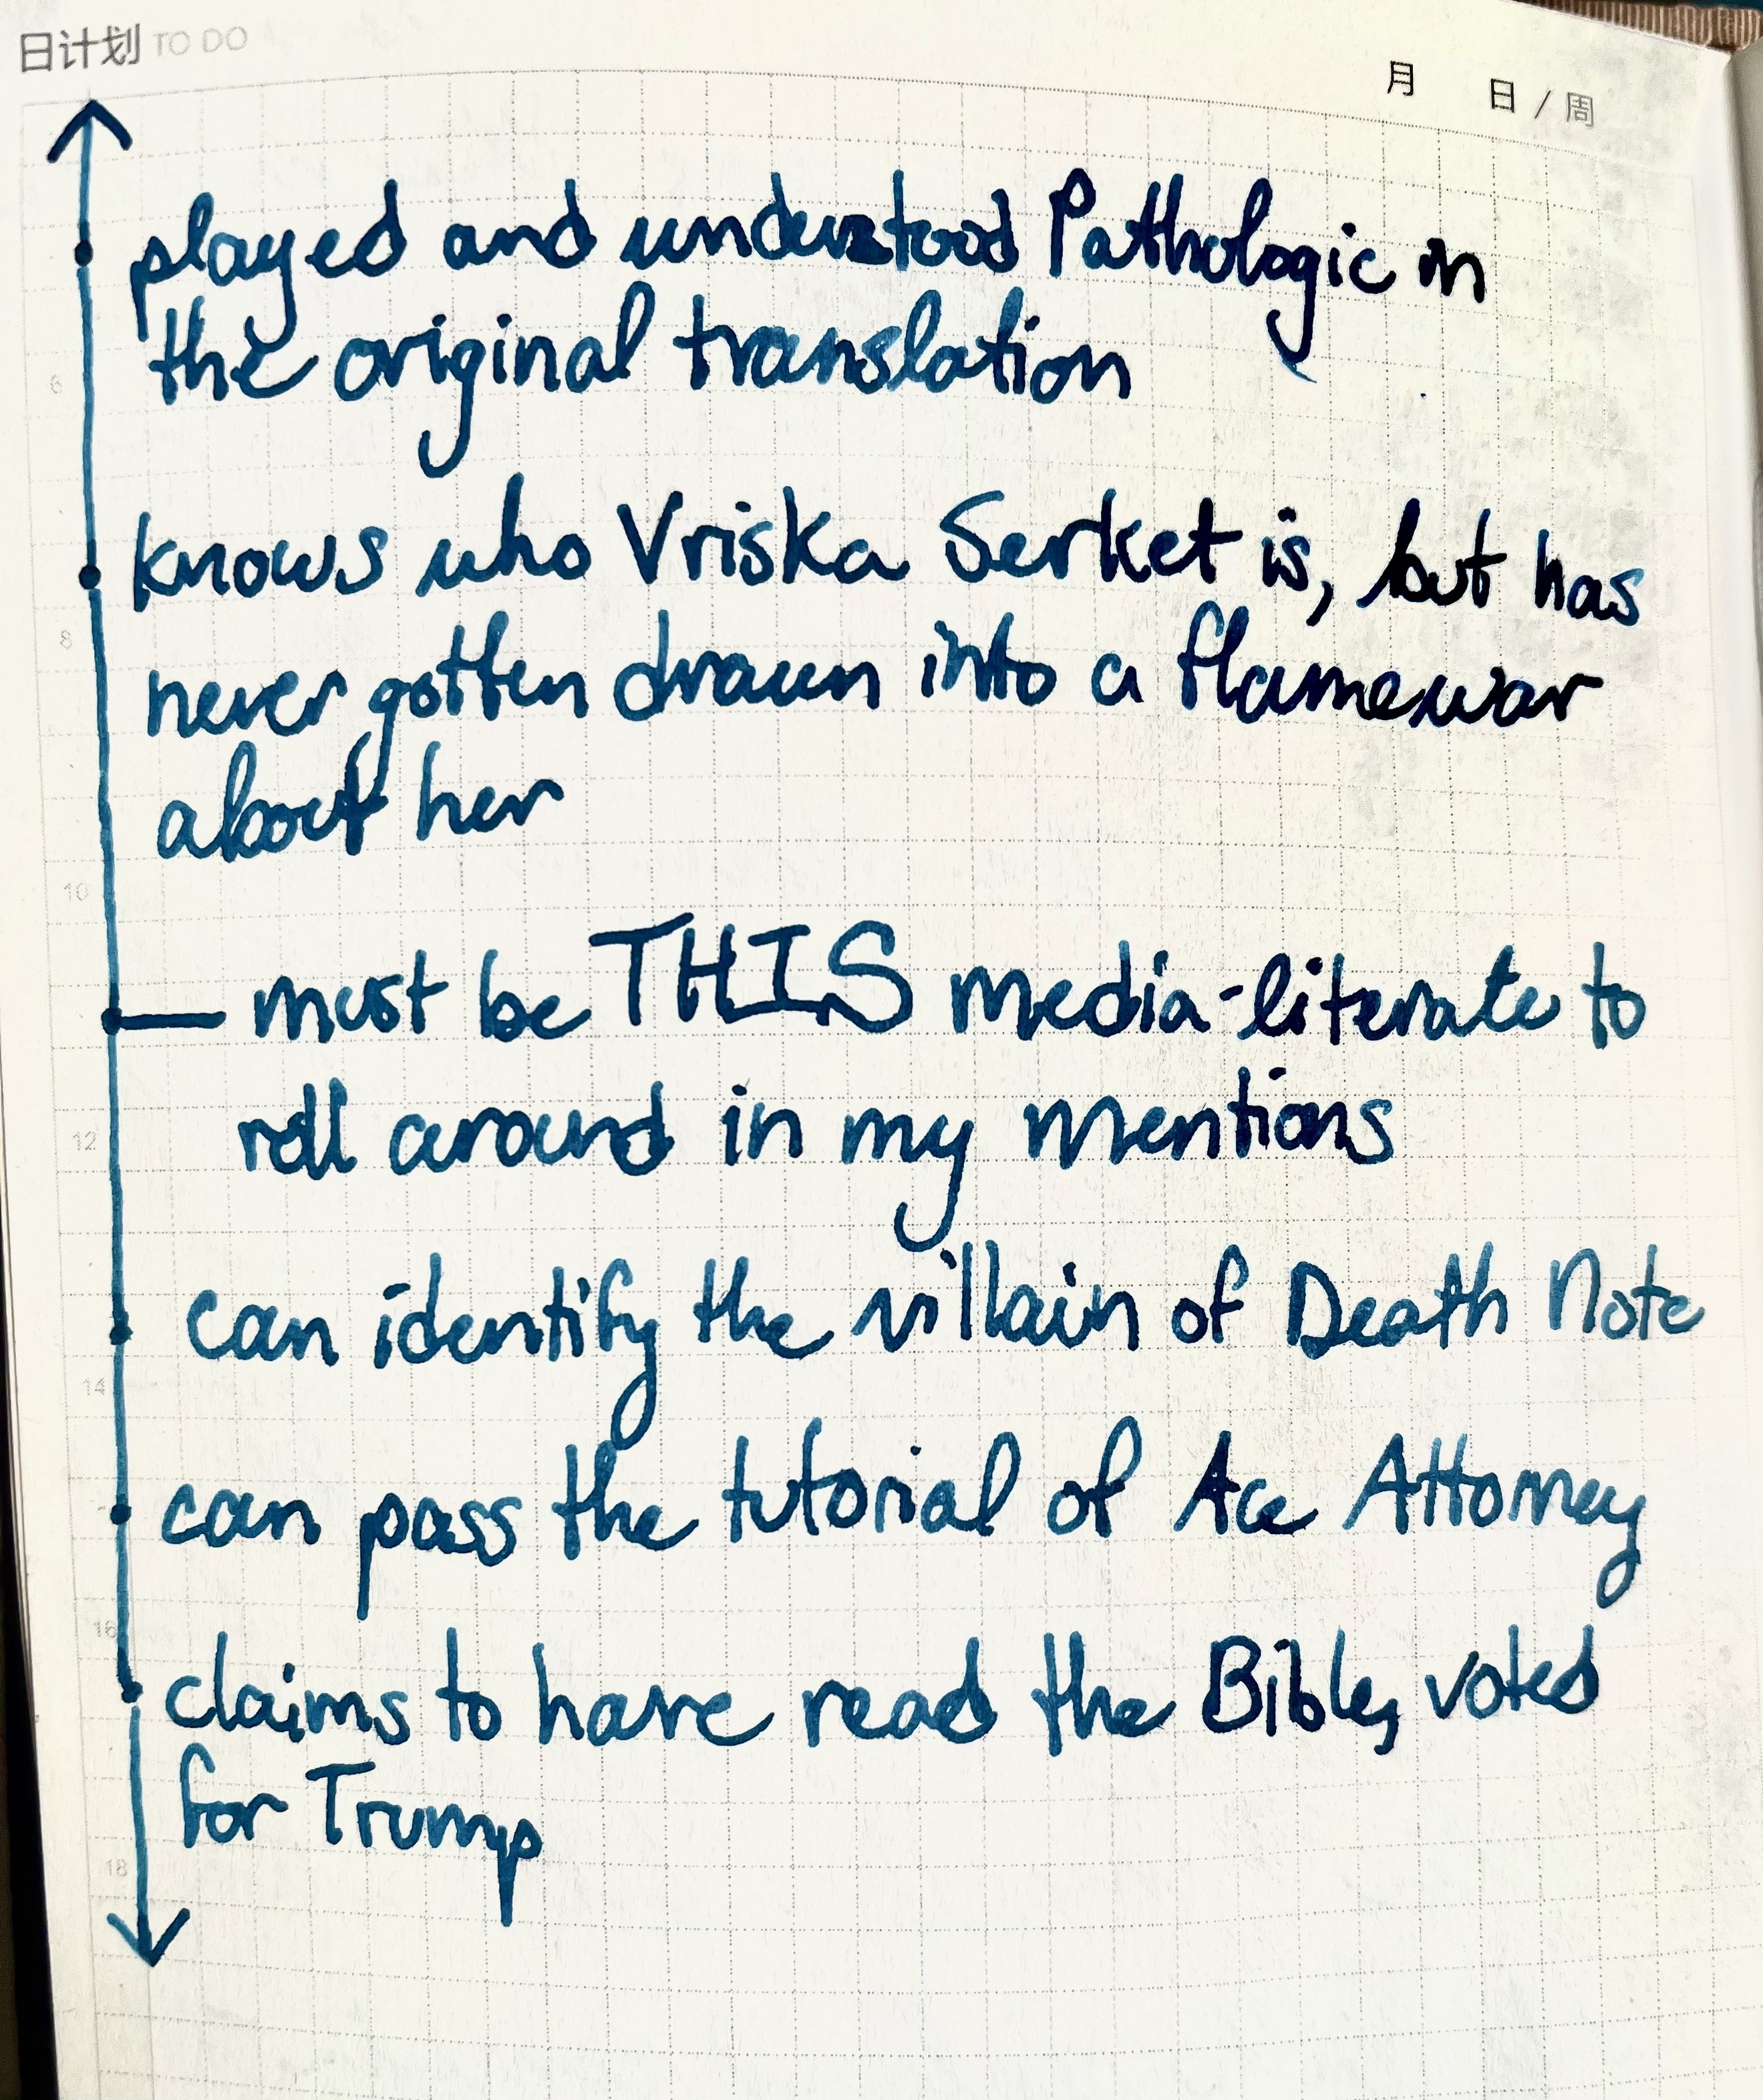 日计划 TO DO
月 日 / 周
played and understood Pathologic in
the original translation
6
knows who Vriska Serket is, but has
8
never gotten drawn into a flamewar
about her
10
must be THIS media-literate to
roll around in my mentions
12
can identify the villain of Death Note
14
can pass the tutorial of Ace Attorney
16
claims to have read the Bible, voted
for Trump
18